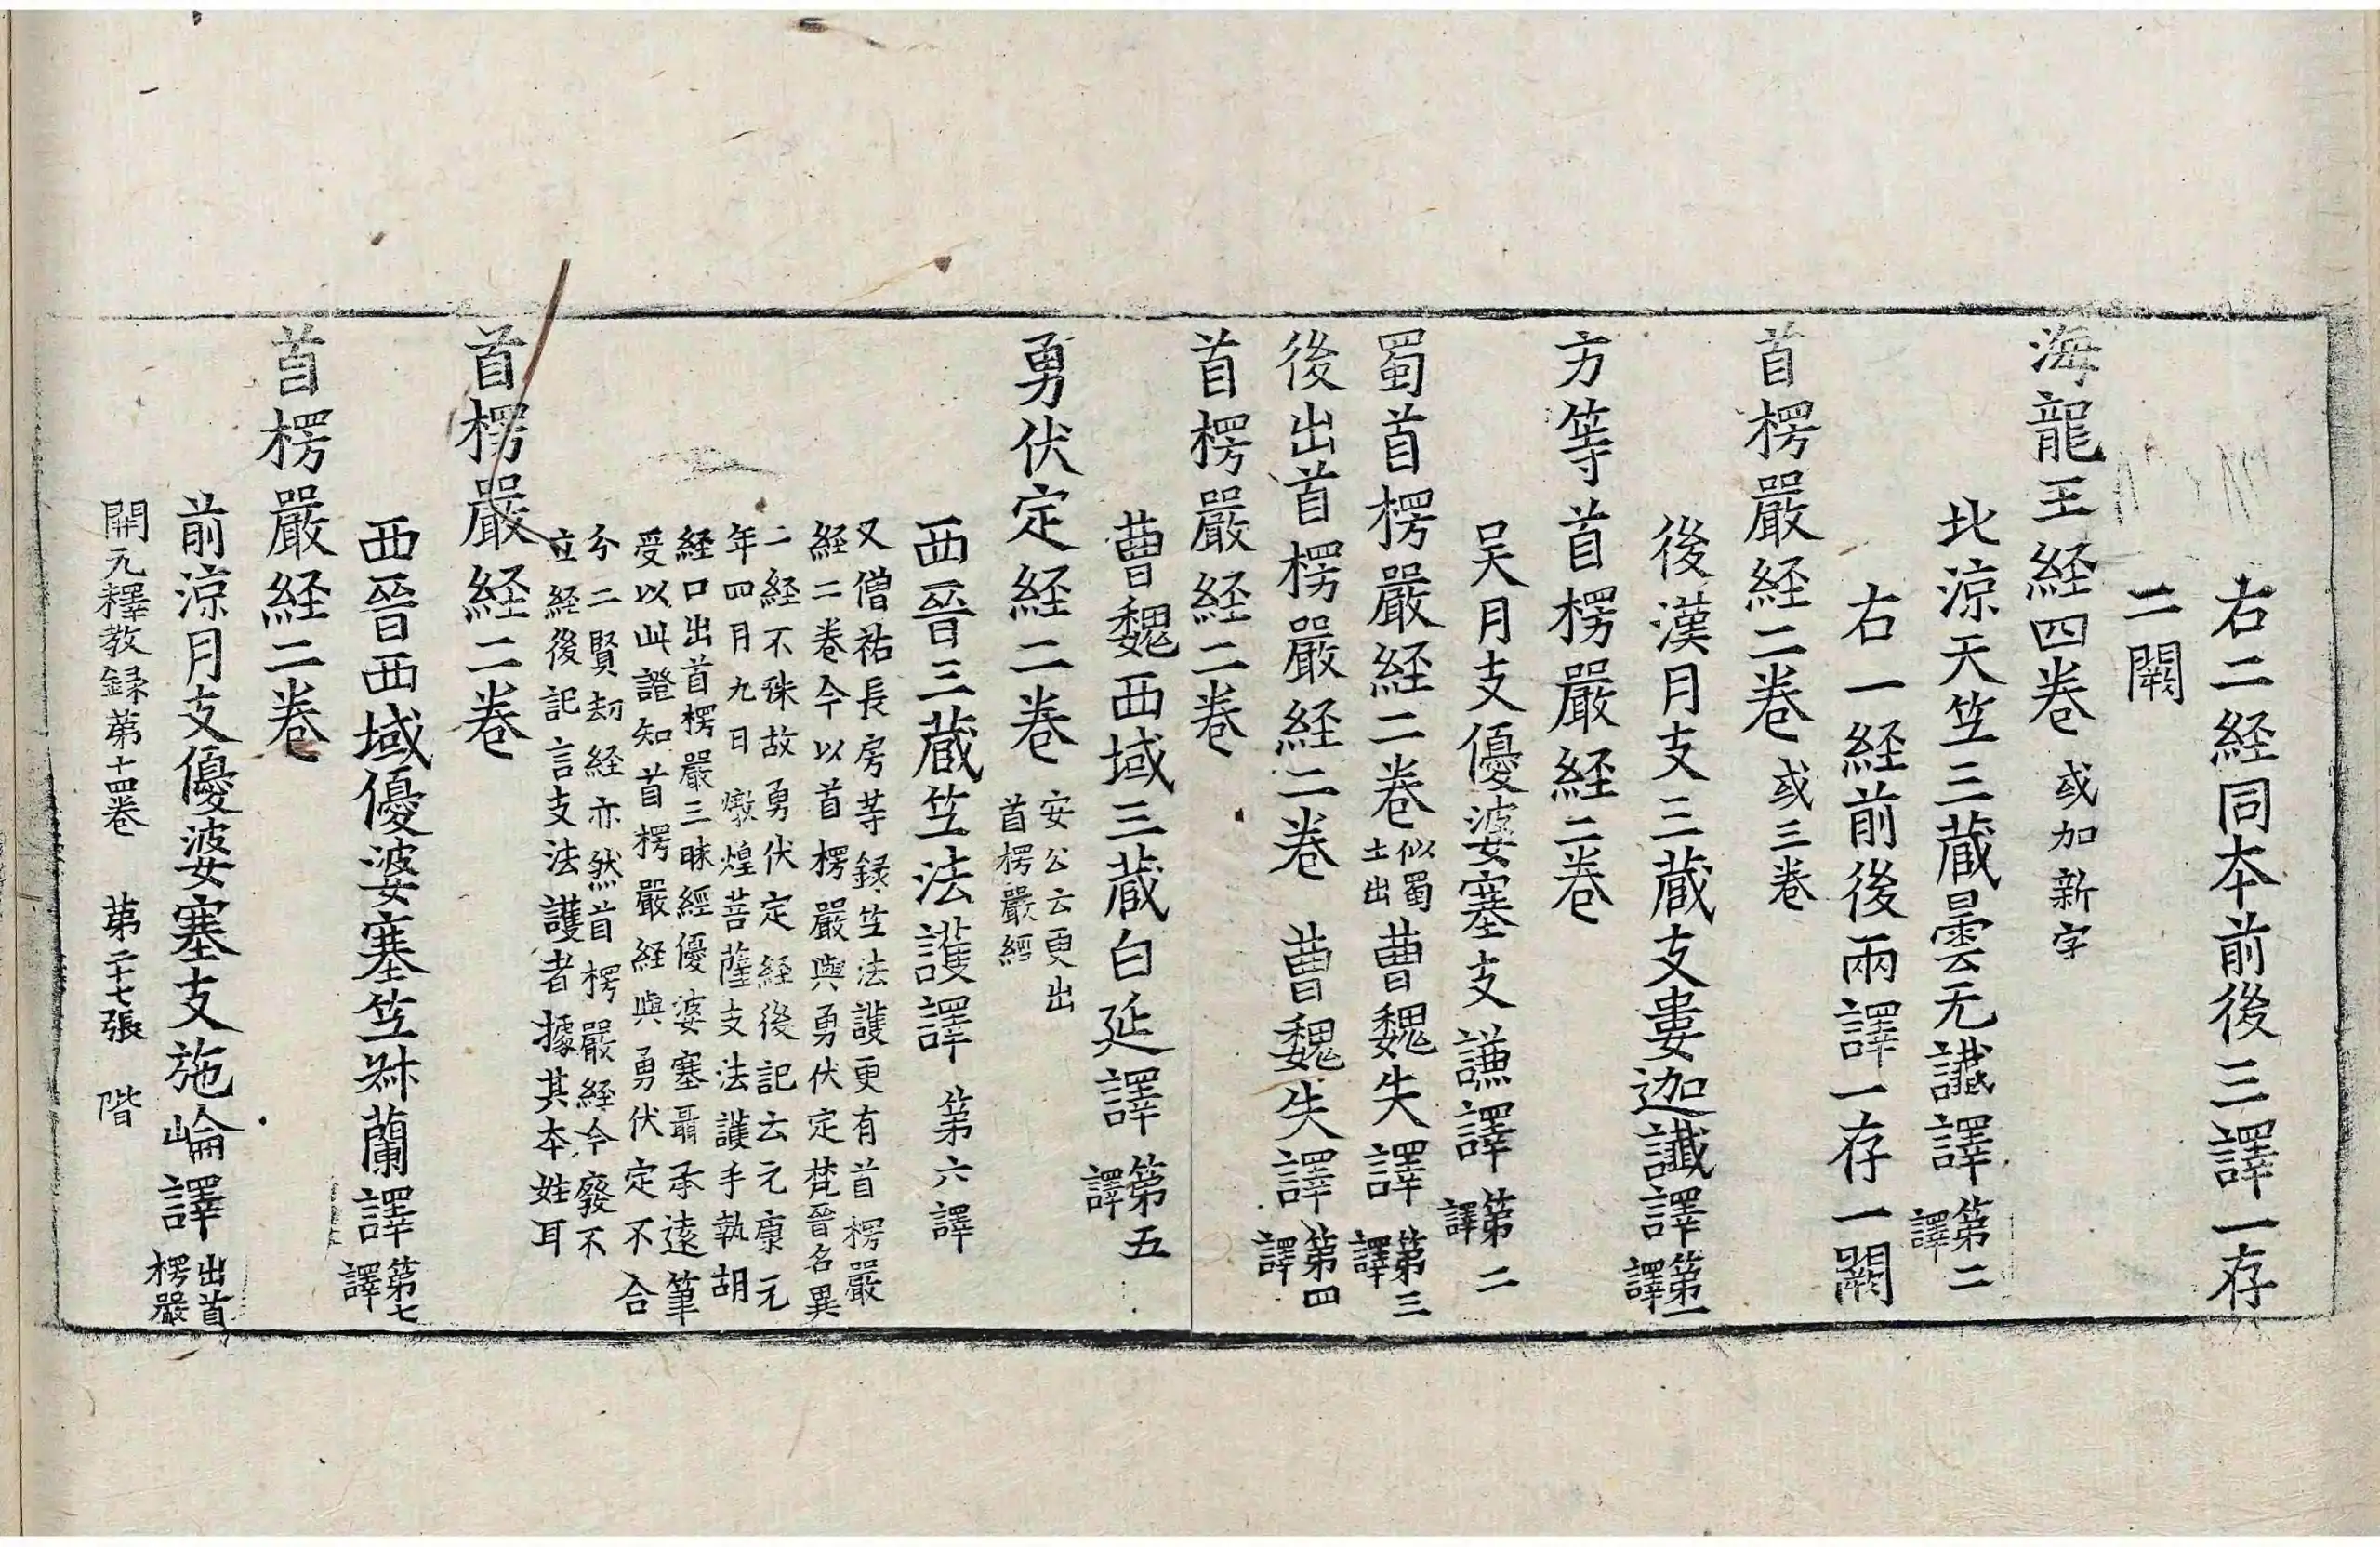 右二経同本前後三譯一存
二闕
海龍王経四卷 或加新字
北涼天竺三蔵曇无讖譯 第二譯
右一経前後兩譯一存一闕
首楞嚴経二卷 或三卷
後漢月支三蔵支婁迦讖譯 第一譯
方等首楞嚴経二卷
吴月支優婆塞支謙譯 第二譯
蜀首楞嚴経二卷 似蜀土出 曹魏失譯 第三譯
後出首楞嚴経二卷 曹魏失譯 第四譯
首楞嚴経二卷
曹魏西域三蔵白延譯 第五譯
勇伏定経二卷 安公云更出首楞嚴經
西晉三蔵竺法護譯 第六譯
又僧祐長房等録竺法護更有首楞嚴
経二卷今以首楞嚴與勇伏定梵晉名異
二経不殊故勇伏定経後記云元康元
年四月九日燉煌菩薩支法護手執胡
経口出首楞嚴三昧經優婆塞聶承遠筆
受以此證知首楞嚴経與勇伏定不合
分二賢刧経亦然首楞嚴経今廢不
立経後記言支法護者據其本姓耳
首楞嚴経二卷
西晉西域優婆塞竺叔蘭譯 第七譯
首楞嚴経二卷
前涼月支優婆塞支施崘譯 出首楞嚴
開元釋教録第十四卷 第二十七張 階